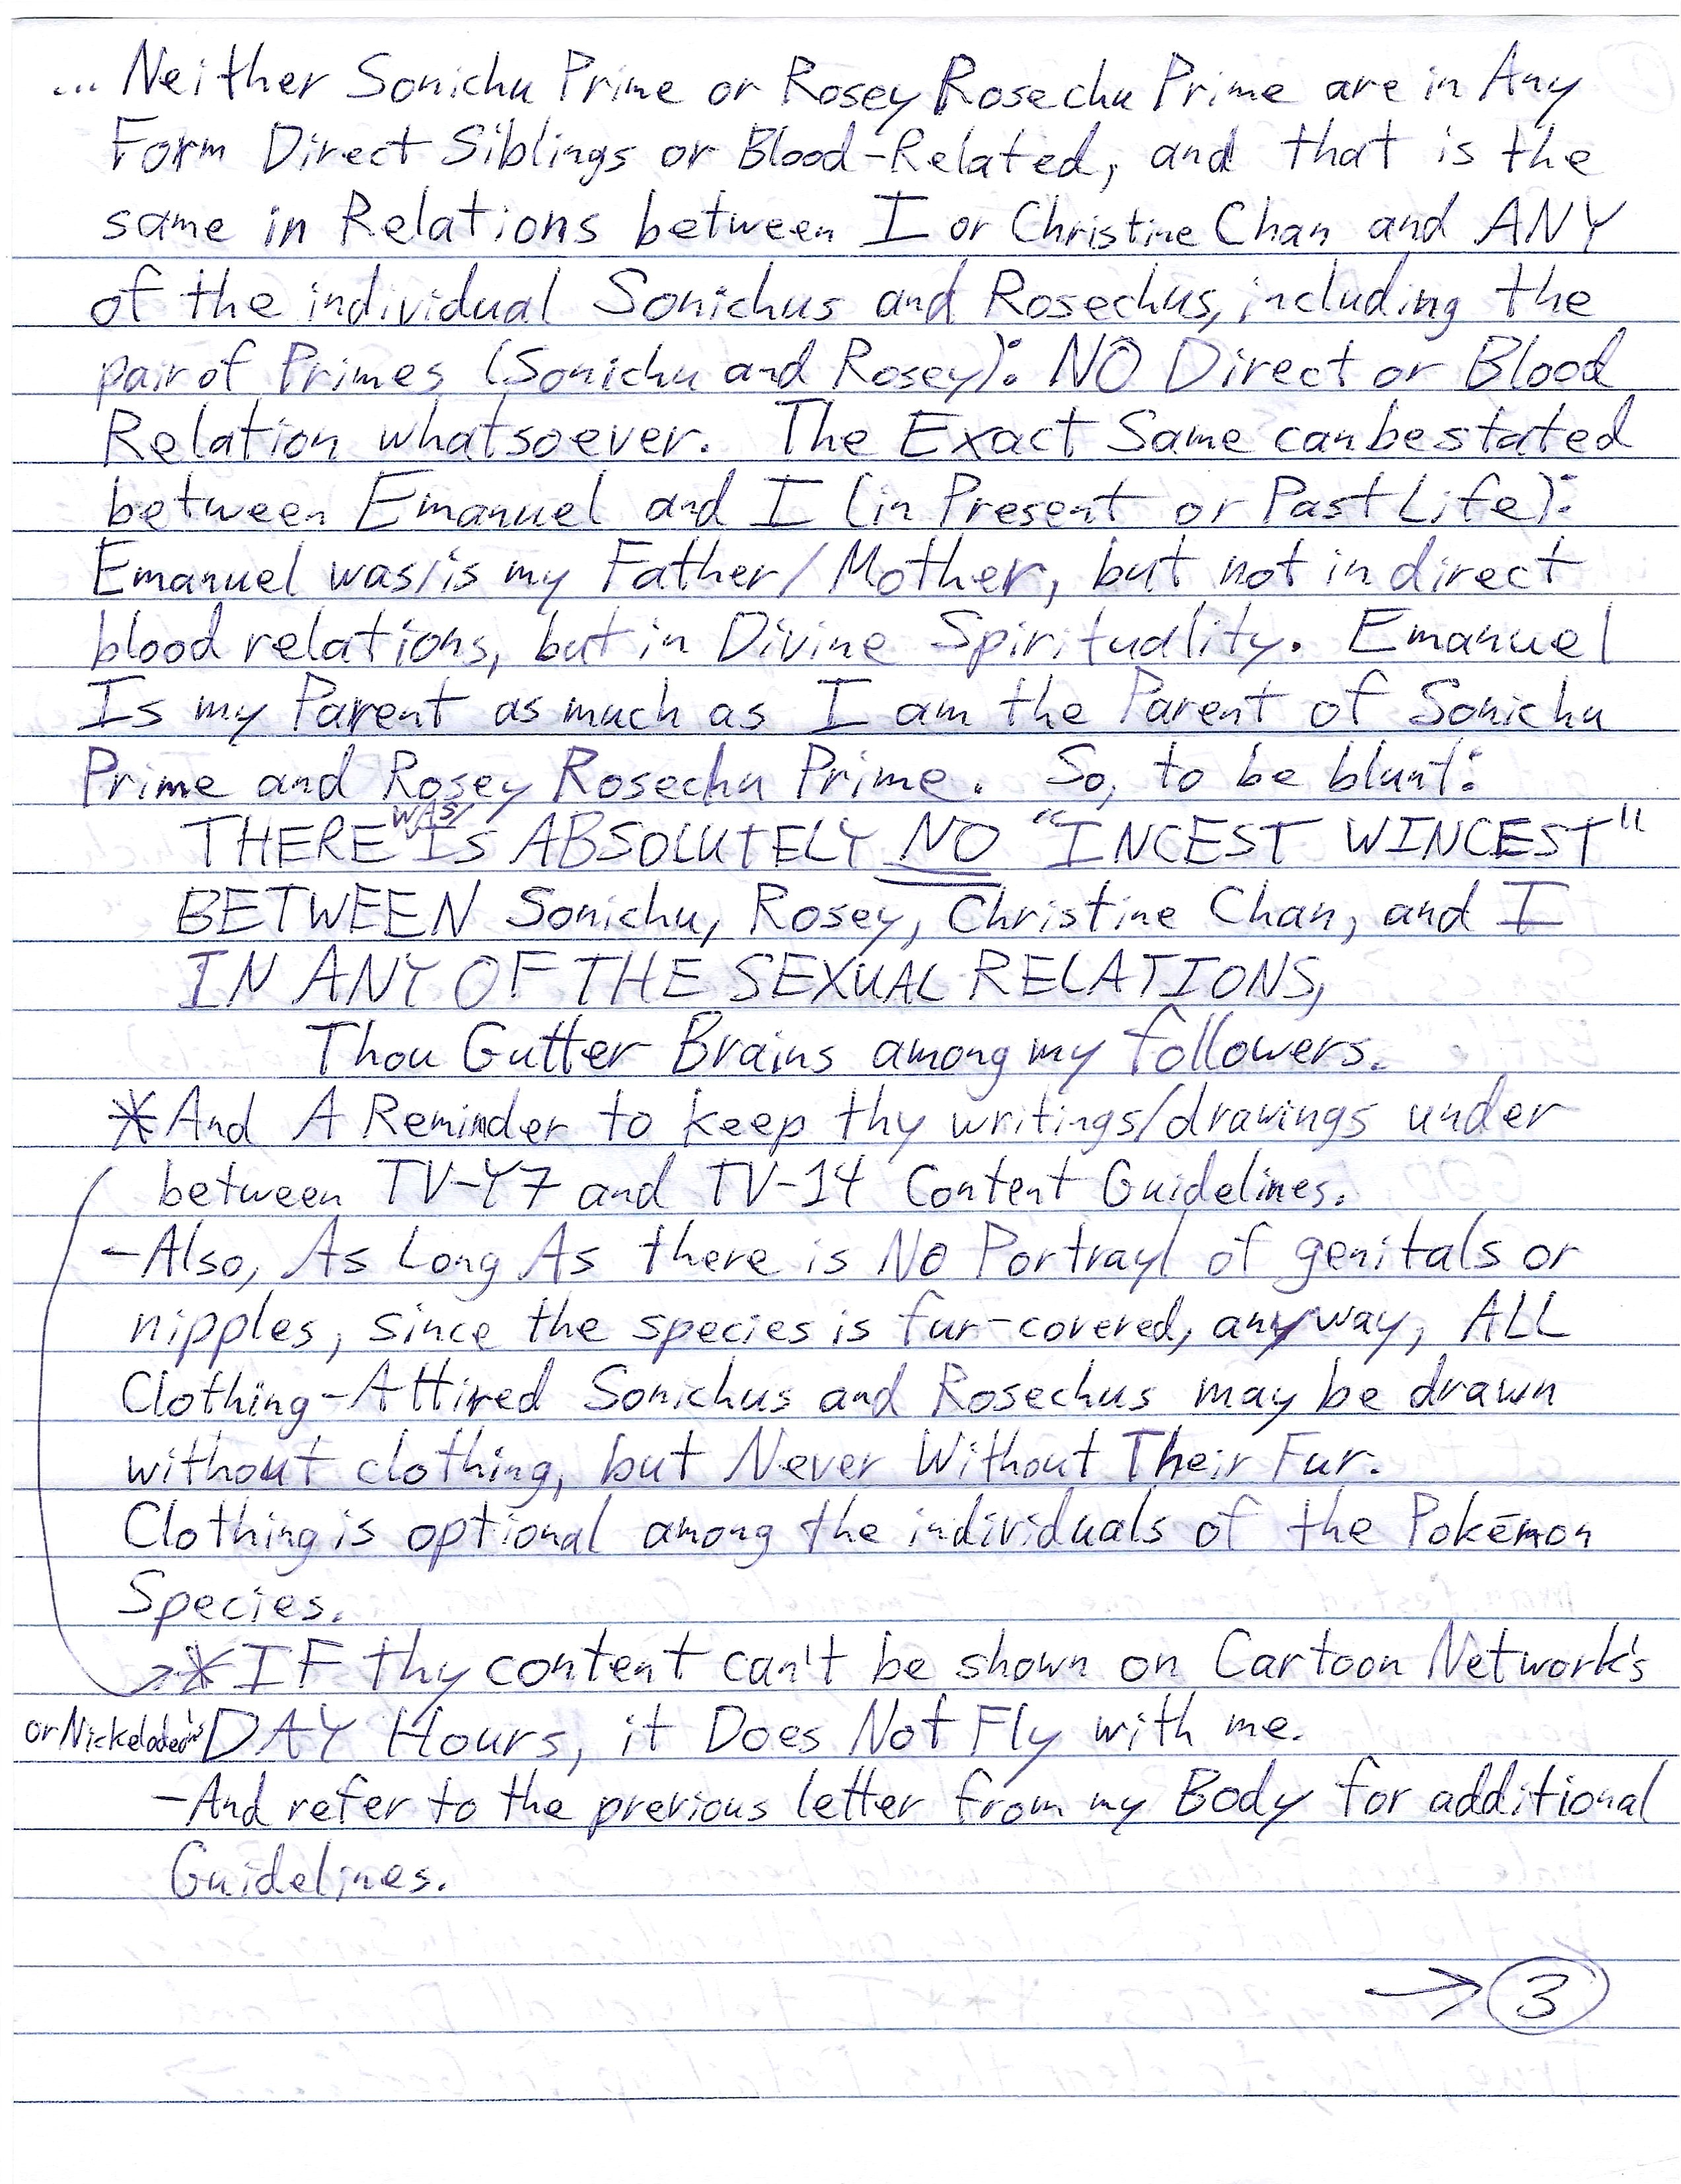 ... Neither Sonichu Prime or Rosey Rosechu Prime are in Any
Form Direct Siblings or Blood-Related, and that is the
same in Relations between I or Christine Chan and ANY
of the individual Sonichus and Rosechus, including the
pair of Primes (Sonichu and Rosey): NO Direct or Blood
Relation whatsoever. The Exact Same can be stated
between Emanuel and I (in Present or Past Life):
Emanuel was/is my Father/Mother, but not in direct
blood relations, but in Divine Spirituality. Emanuel
Is my Parent as much as I am the Parent of Sonichu
Prime and Rosey Rosechu Prime. So, to be blunt:
THERE WAS/IS ABSOLUTELY NO "INCEST WINCEST"
BETWEEN Sonichu, Rosey, Christine Chan, and I
IN ANY OF THE SEXUAL RELATIONS,
Thou Gutter Brains among my followers.
*And A Reminder to keep thy writings/drawings under
between TV-Y7 and TV-14 Content Guidelines.
-Also, As Long As there is No Portrayl of genitals or
nipples, since the species is fur-covered, anyway, ALL
Clothing-Attired Sonichus and Rosechus may be drawn
without clothing, but Never Without Their Fur.
Clothing is optional among the individuals of the Pokémon
Species.
→*IF thy content can't be shown on Cartoon Network's
or Nickelodeon's DAY Hours, it Does Not Fly with me.
-And refer to the previous letter from my Body for additional
Guidelines.
→ 3